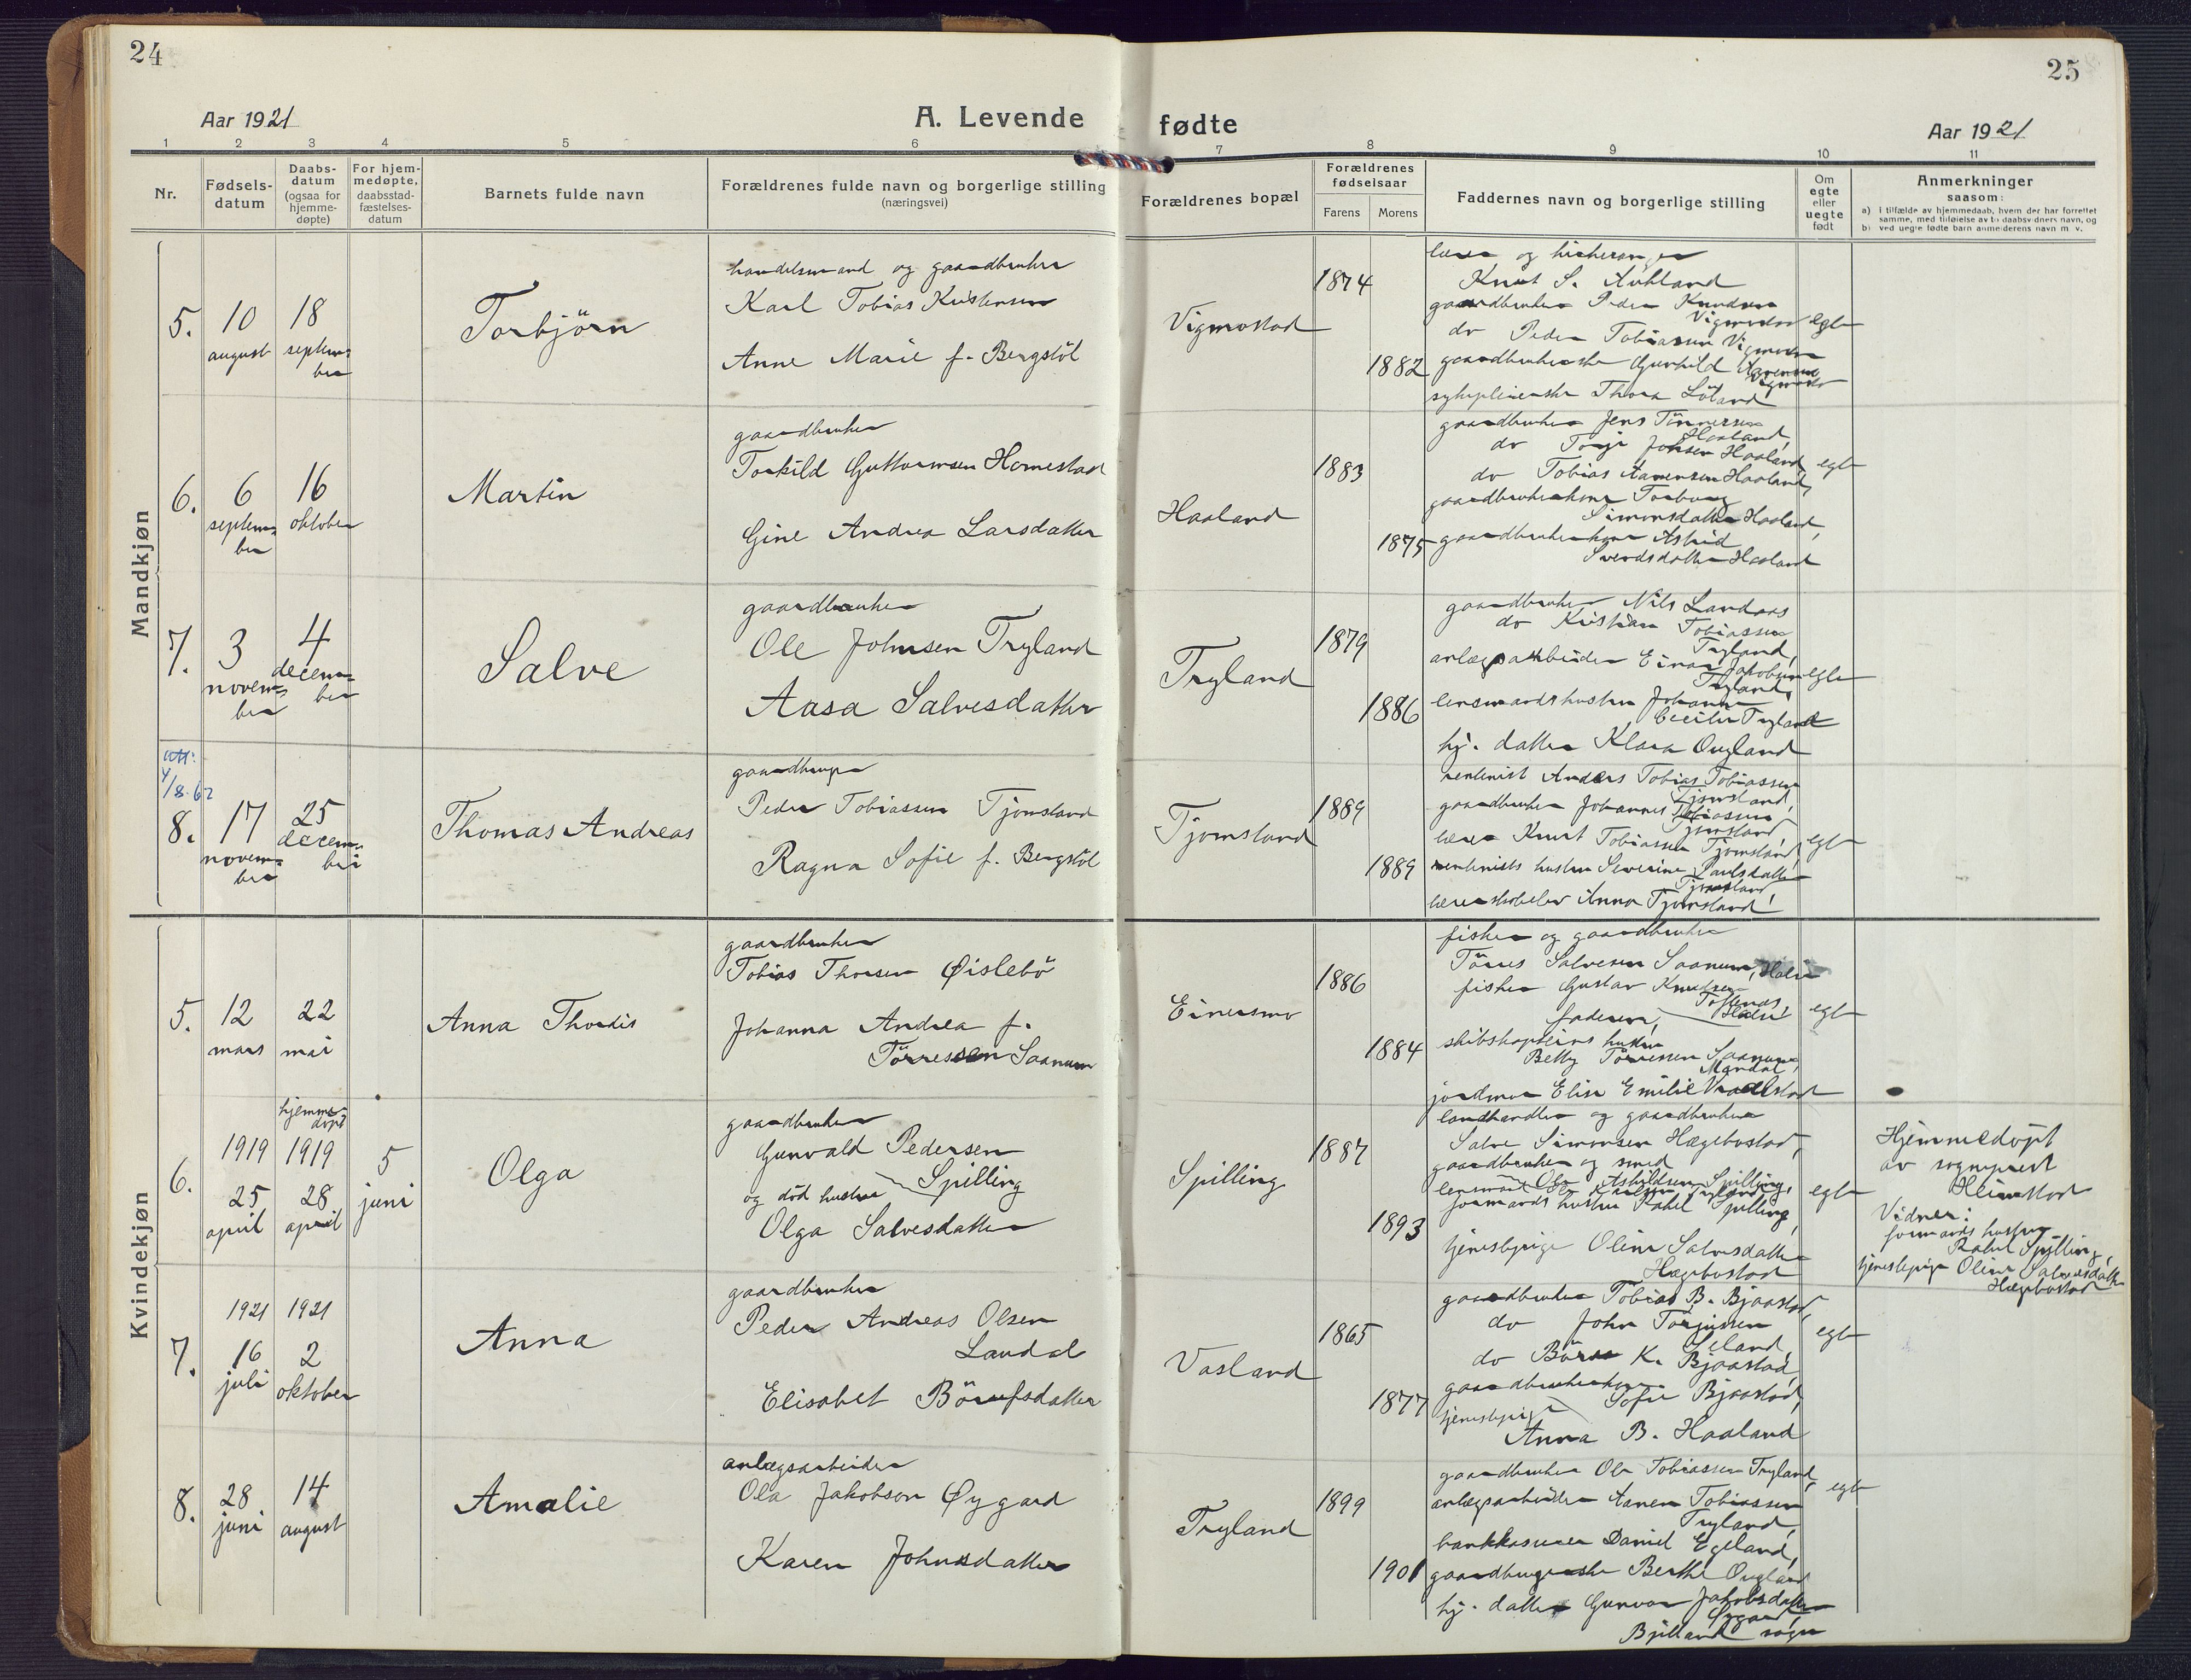 24
Aar 1921
A. Levende
1
2
3
4
5
6
Nr.
Fødsels-
datum
Daabs-
datum
(ogsaa for
hjemme-
døpte)
For hjem-
medøpte,
daabsstad-
fæstelses-
datum
Barnets fulde navn
Forældrenes fulde navn og borgerlige stilling
(næringsvei)
Mandkjøn
5.
10
august
18
septem-
ber
Torbjörn
handelsmand og gaardbruker
Karl Tobias Kristensen
Anne Marie f. Bergstöl
6.
6
septem-
ber
16
oktober
Martin
gaardbruker
Torkild Guttormsen Homestad
Gine Andrea Larsdatter
7.
3
novem-
ber
4
decem-
ber
Salve
gaardbruker
Ole Johnsen Tryland
Aasa Salvesdatter
8.
17
novem-
ber
25
decem-
ber
Thomas Andreas
Peder Tobiassen Tjomsland
Ragna Sofie f. Bergstöl
Kvindekjøn
5.
12
mars
22
mai
Anna Thordis
gaardbruker
Tobias Thorsen Øislebö
Johanna Andrea f.
Törressen Saanum
6.
1919
25
april
hjemme-
döpt
1919
28
april
5
juni
Olga
gaardbruker
Gunvald Pedersen
Spilling
og död hustru
Olga Salvesdatter
7.
1921
16
juli
1921
2
oktober
Anna
gaardbruker
Peder Andreas Olsen
Laudal
Elisabet Börufsdatter
8.
28
juni
14
august
Amalie
anlægsarbeider
Ola Jakobson Øygard
Karen Johnsdatter
25
fødte
Aar 1921
7
8
9
10
11
Forældrenes bopæl
Forældrenes
fødselsaar
Farens
Morens
Faddernes navn og borgerlige stilling
Om
egte
eller
uegte
født
Anmerkninger
saasom:
a) i tilfælde av hjemmedaab, hvem der har forrettet
samme, med tilføielse av to daabsvidners navn, og
b) ved uegte fødte barn anmelderens navn m. v.
Vigmostad
1874
1882
lærer og kirkesanger
Knut S. Aukland
gaardbruker Peder Knudsen
Vigmostad
do Peder Tobiassen Vigmostad
gaardbrukerske Gunhild
Vigmostad
sykepleierske Thora Löland
egte
Haaland
1883
1875
gaardbruker Jens Tönnersen
Haaland,
do Johsen Haaland,
do Tobias Aanensen Haaland,
gaardbrukerkone Torborg
Simonsdatter Haaland,
gaardbrukerkone Astrid
Sverdsdatter Haaland
egte
Tryland
1879
1886
gaardbruker Nils Landaas
do Kristian Tobiassen
Tryland,
anlægsarbeider Einar Jakobsen
Tryland,
lensmandshustru Johanne
Cecilie Tryland
hj. datter Klara Ougland
egte
Tjomsland
1889
1889
rentenist Anders Tobias Tobiassen
Tjomsland,
gaardbruker Johannes Tobiassen
Tjomsland,
lærer Knut Tobiassen Tjomsland,
rentenists hustru Severine Paulsdatter
Tjomsland
lærerskoleelev Anna Tjomsland!
egte
Einersmo
1886
1884
fisker og gaardbruker
Törres Salvesen Saanum, Halse
fisker Gustav Knutsen
Toftenes,
Halse
faderen,
skibskapteins hustru
Betty Törressen Saanum,
Mandal,
jordmor Elise Emilie Vraalstad
egte
Spilling
1887
1893
landhandler og gaardbruker
Salve Simonsen Hægebostad,
gaardbruker og smed
Ole Askildsen Spilling,
formands hustru Rakel Spilling,
tjenestepige Oline Salvesdatter
Hægebostad
egte
Hjemmedöpt
av sogneprest
Heimstad
Vidner:
formands hustru
Rakel Spilling,
tjenestepige Oline Salvesdatter
Hægebostad
Vasland
1865
1877
gaardbruker Tobias B. Bjaastad,
do John Torjussen
Seland,
do K. Bjaastad,
gaardbrukerkone
Sofie Bjaastad,
tjenestepige
Anna B. Haaland
egte
Tryland
1899
1901
gaardbruker Ole Tobiassen Tryland,
anlægsarbeider Aanen Tobiassen
Tryland,
bankkasserer Daniel Egeland,
gaardbrugerske Berthe Ougland
hj. datter Gunvor Jakobsdatter
Øygard,
Bjelland sogn
egte